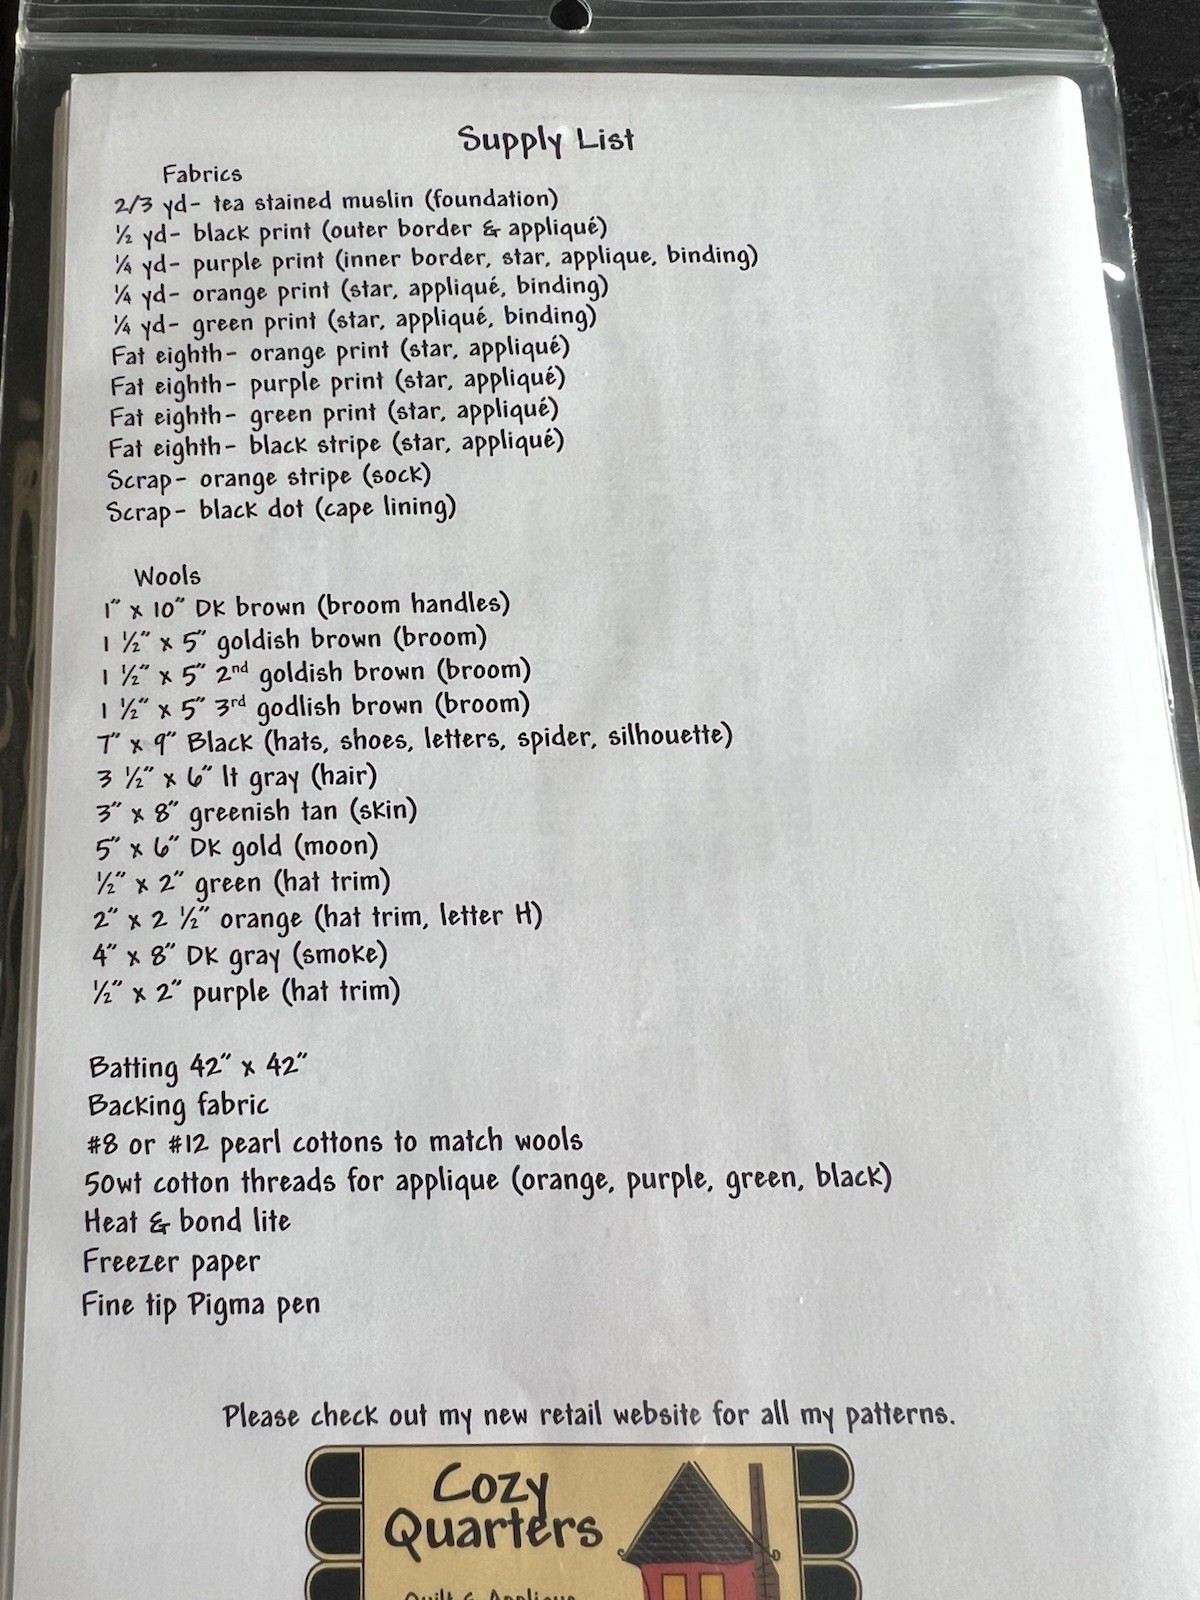 Supply List
Fabrics
2/3 yd- tea stained muslin (foundation)
½ yd- black print (outer border & appliqué)
¼ yd- purple print (inner border, star, applique, binding)
¼ yd- orange print (star, appliqué, binding)
¼ yd- green print (star, appliqué, binding)
Fat eighth- orange print (star, appliqué)
Fat eighth- purple print (star, appliqué)
Fat eighth- green print (star, appliqué)
Fat eighth- black stripe (star, appliqué)
Scrap- orange stripe (sock)
Scrap- black dot (cape lining)
Wools
1” x 10” DK brown (broom handles)
1 ½” x 5” goldish brown (broom)
1 ½” x 5” 2nd goldish brown (broom)
1 ½” x 5” 3rd godlish brown (broom)
7” x 9” Black (hats, shoes, letters, spider, silhouette)
3 ½” x 6” lt gray (hair)
3” x 8” greenish tan (skin)
5” x 6” DK gold (moon)
½” x 2” green (hat trim)
2” x 2 ½” orange (hat trim, letter H)
4” x 8” DK gray (smoke)
½” x 2” purple (hat trim)
Batting 42” x 42”
Backing fabric
#8 or #12 pearl cottons to match wools
50wt cotton threads for applique (orange, purple, green, black)
Heat & bond lite
Freezer paper
Fine tip Pigma pen
Please check out my new retail website for all my patterns.
Cozy
Quarters
Quilt & Applique